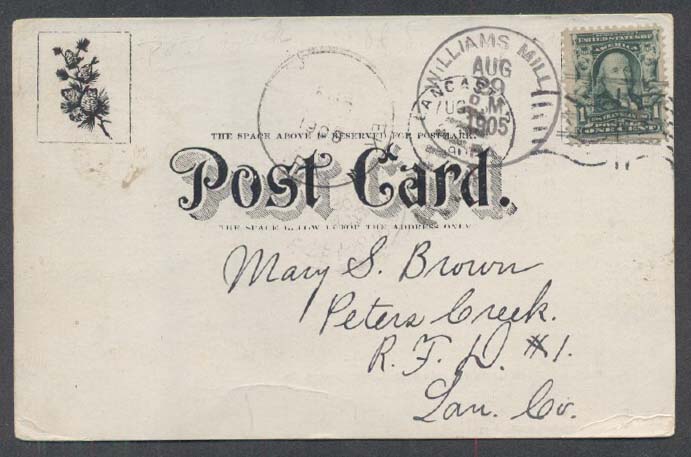 WILLIAMS MILL
AUG
29
P.M
1905
LANCAST
UNITED STATES OF AMERICA
ONE CENT
THE SPACE ABOVE IS RESERVED FOR POSTMARK.
Post Card.
THE SPACE BELOW IS FOR THE ADDRESS ONLY
Mary S. Brown
Peters Creek.
R. F. D. #1.
Lan. Co.